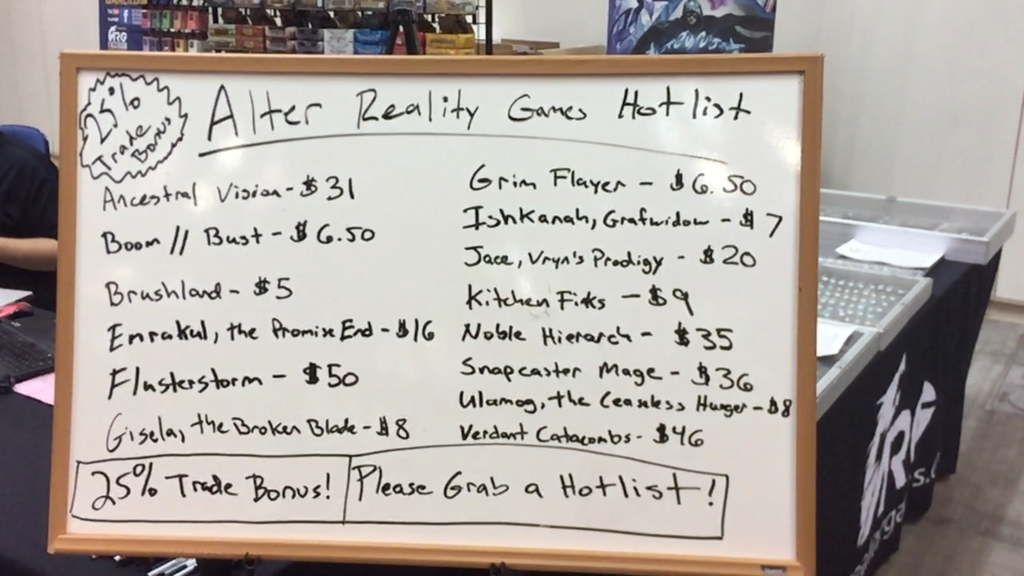 25%
Trade
Bonus
Alter Reality Games Hotlist
Ancestral Vision - $31
Boom // Bust - $6.50
Brushland - $5
Emrakul, the Promise End - $16
Flusterstorm - $50
Gisela, the Broken Blade - $8
Grim Flayer - $6.50
Ishkanah, Grafwidow - $7
Jace, Vryn's Prodigy - $20
Kitchen Finks - $9
Noble Hierarch - $35
Snapcaster Mage - $36
Ulamog, the Ceaseless Hunger - $8
Verdant Catacombs - $46
25% Trade Bonus!
Please Grab a Hotlist!